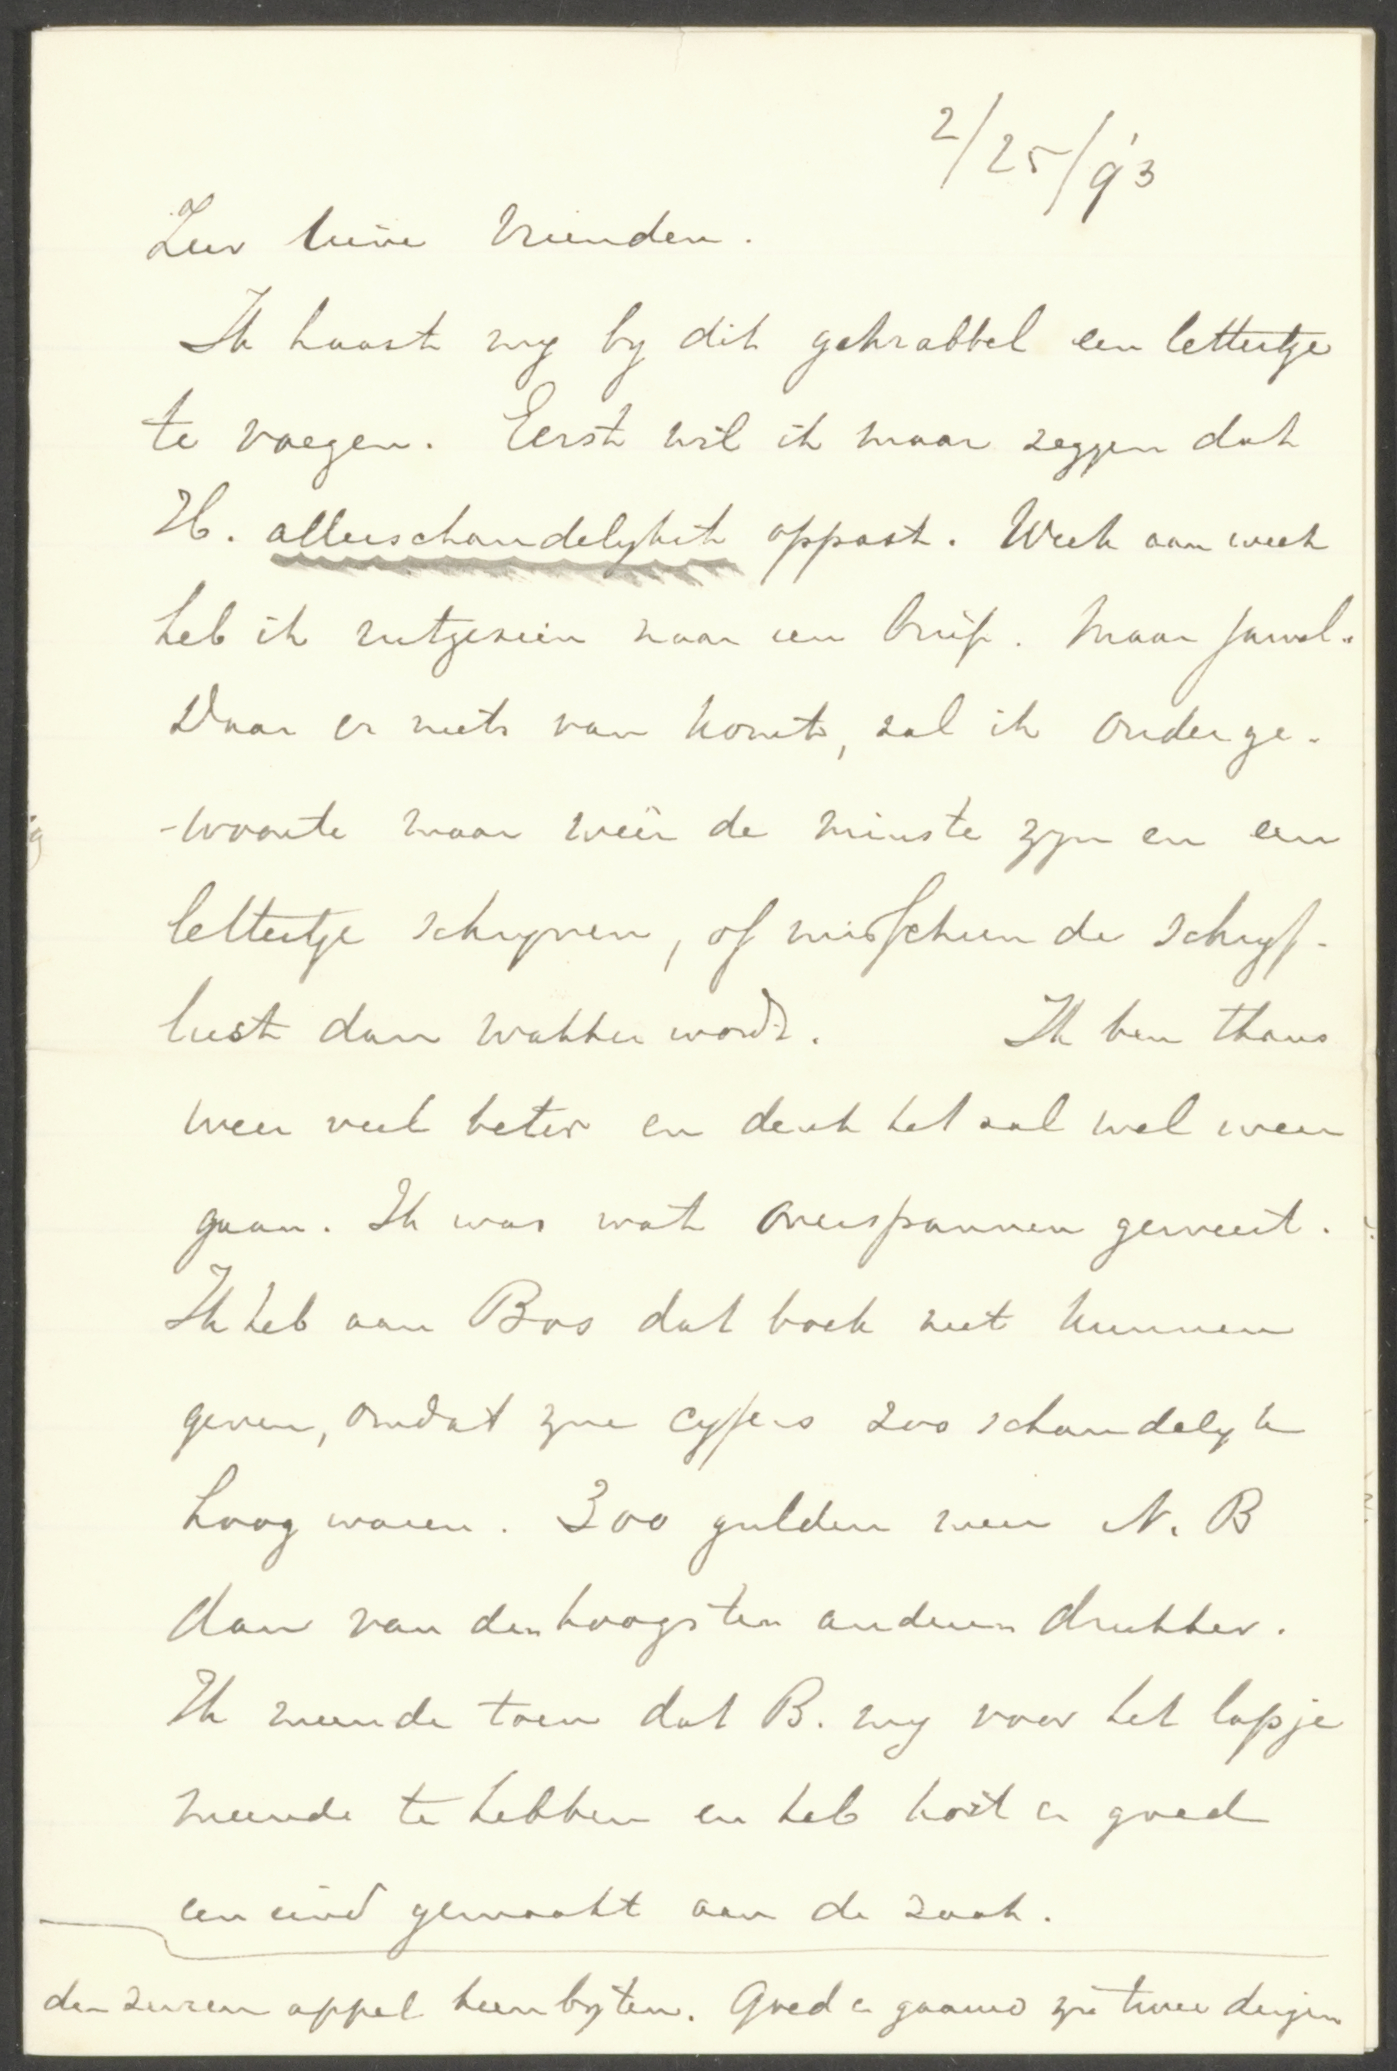 2/25/'93
Zeer lieve Vrienden.
Ik haast my by dit gekrabbel een lettertje
te voegen. Eerst wil ik maar zeggen dat
H. allerschandelykst oppast. Week aan week
heb ik uitgezien naar een brief. Maar jawel.
Daar er niets van komt, zal ik ouderge-
-woonte maar weêr de minste zyn en een
lettertje schryven, of misschien de schryf-
lust dan wakker wordt. Ik ben thans
weer veel beter en denk het zal wel weer
gaan. Ik was wat overspannen geweest.
Ik heb aan Bos dat boek niet kunnen
geven, omdat zyne cyfers zoo schandelyk
hoog waren. 300 gulden meer N. B
dan van den hoogsten anderen drukker.
Ik meende toen dat B. my voor het lapje
meende te hebben en heb kort en goed
een eind gemaakt aan de zaak.
den zuren appel heenbyten. Goed en gaauw zyn twee dingen